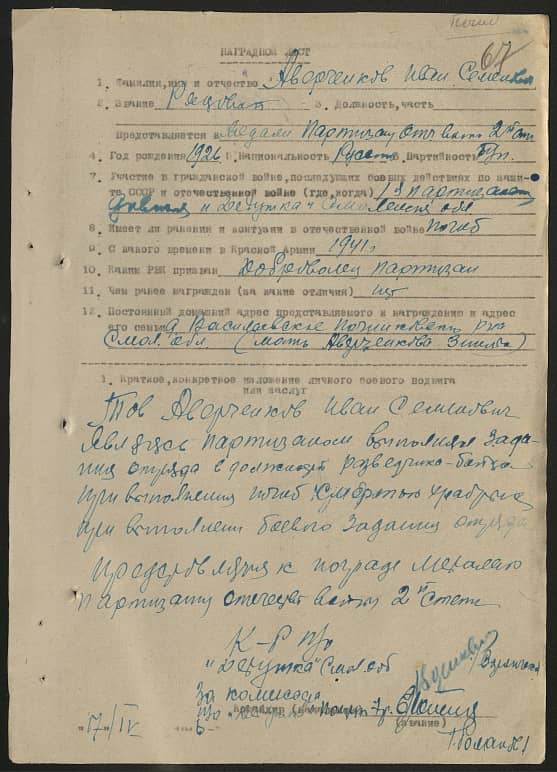 67
НАГРАДНОЙ ЛИСТ
1. Фамилия, имя и отчество Аворченков Иван Семенович
2. Звание Рядовой 3. Должность, часть
Представляется к медали Партизану отеч войны 2й ст
4. Год рождения 1926 г. Национальность Русский Партийность б/п.
7. Участие в гражданской войне, последующих боевых действиях по защи-
те СССР и отечественной войне (где, когда)
и Дедушка Смоленской обл
8. Имеет ли ранения и контузии в отечественной войне погиб
9. С какого времени в Красной Армии 1941 г
10. Каким РВК призван Доброволец партизан
11. Чем ранее награжден (за какие отличия) нет
12. Постоянный домашний адрес представляемого к награждению и адрес
его семьи д Василевское Починковский
Смол. обл. (мать Аверченкова
1. Краткое, конкретное изложение личного боевого подвига
или заслуг
Тов Аворченков Иван Семенович
являясь партизаном выполнял зада-
ния отряда в должности разведчика-бойца
при выполнении погиб смертью храбрых
при выполнении боевого задания отряда
Представляется к награде медалью
Партизану отечест войны 2й степ
К-р п/о
"Дедушка" Смол обл
За комиссара
п/о
(звание)
"17" IV